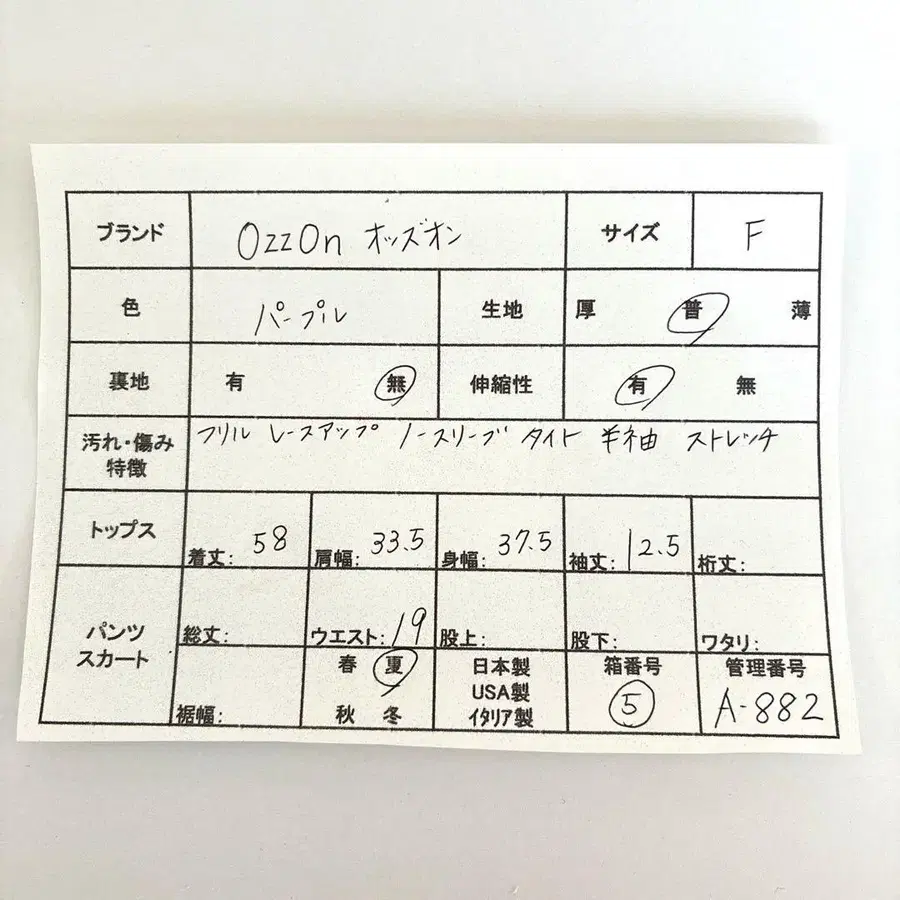 ブランド OzzOn オッズオン サイズ F
色 パープル 生地 厚 普 薄
裏地 有 無 伸縮性 有 無
汚れ・傷み 特徴 フリル レースアップ ノースリーブ タイト 半袖 ストレッチ
トップス 着丈: 58 肩幅: 33.5 身幅: 37.5 袖丈: 12.5 裄丈:
パンツ スカート 総丈: ウエスト: 19 股上: 股下: ワタリ:
裾幅: 春 夏 秋 冬 日本製 USA製 イタリア製 箱番号 5 管理番号 A-882